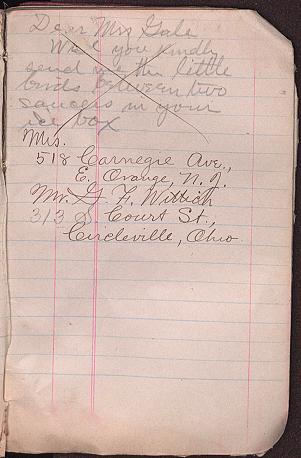 Dear Mrs Gale
Will you kindly
send me the little
birds between two
saucers in your
ice box
Mrs.
518 Carnegie Ave.,
E. Orange, N. J.
Mr. G. F. Wittich
313 S. Court St.,
Circleville, Ohio.